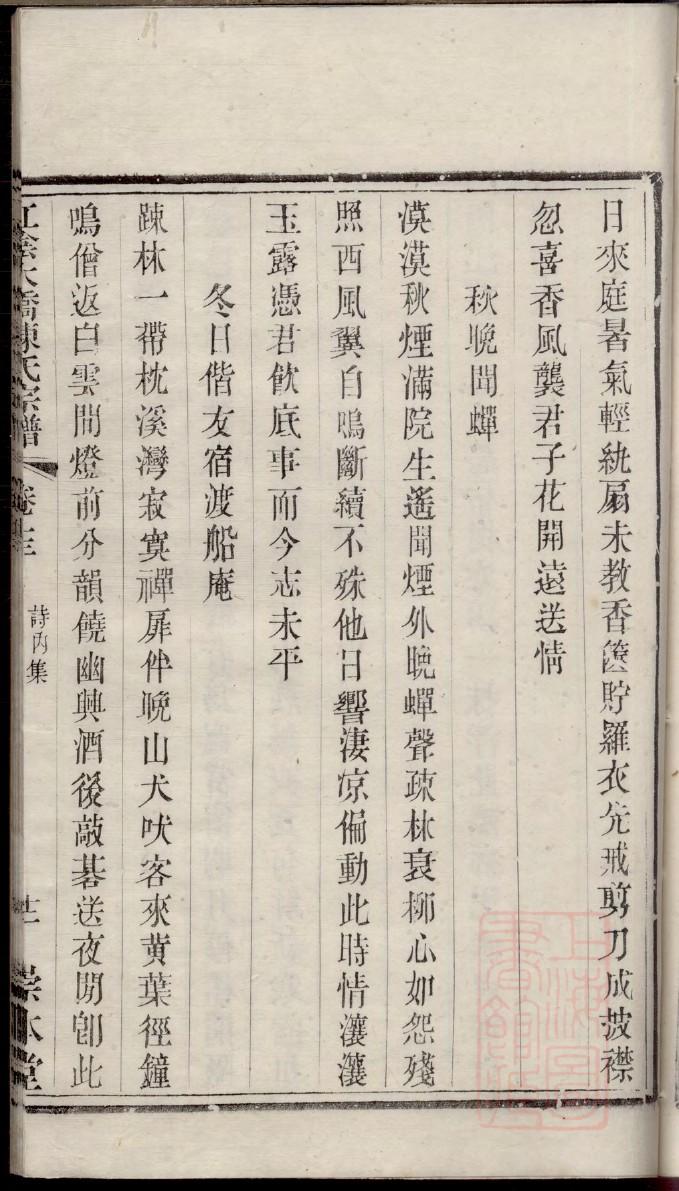 日來庭暑氣輕紈扇未教香篋貯羅衣先戒剪刀成披襟
忽喜香風襲君子花開遠送情
秋晚聞蟬
漠漠秋煙滿院生遙聞煙外晚蟬聲疎林衰柳心如怨殘
照西風翼自鳴斷續不殊他日響淒凉偏動此時情瀼瀼
玉露憑君飲底事而今志未平
冬日偕友宿渡船庵
疎林一帶枕溪灣寂寞禪扉伴晚山犬吠客來黃葉徑鐘
鳴僧返白雲間燈前分韻饒幽興酒後敲碁送夜閒卽此
江陰大橋陳氏宗譜 卷十三 詩內集 十二 崇本堂
上海圖書館藏